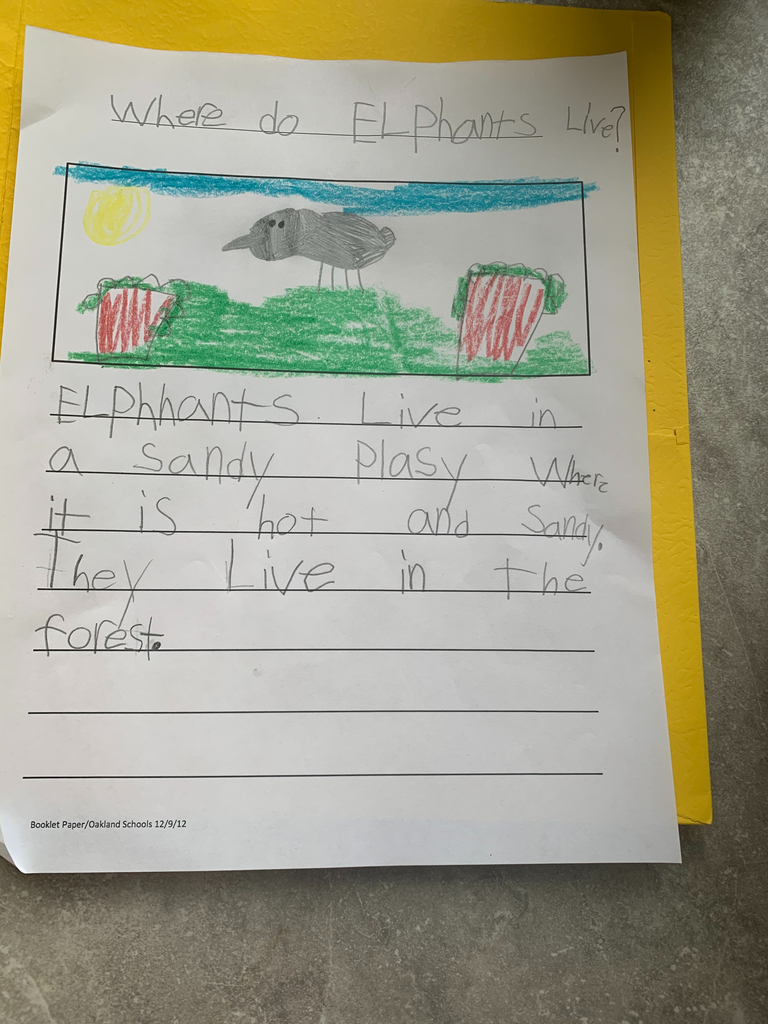 Where do ELPhants Live?
ELPhhants Live in
a Sandy Plasy Where
it is hot and Sandy.
They Live in the
forest.
Booklet Paper/Oakland Schools 12/9/12